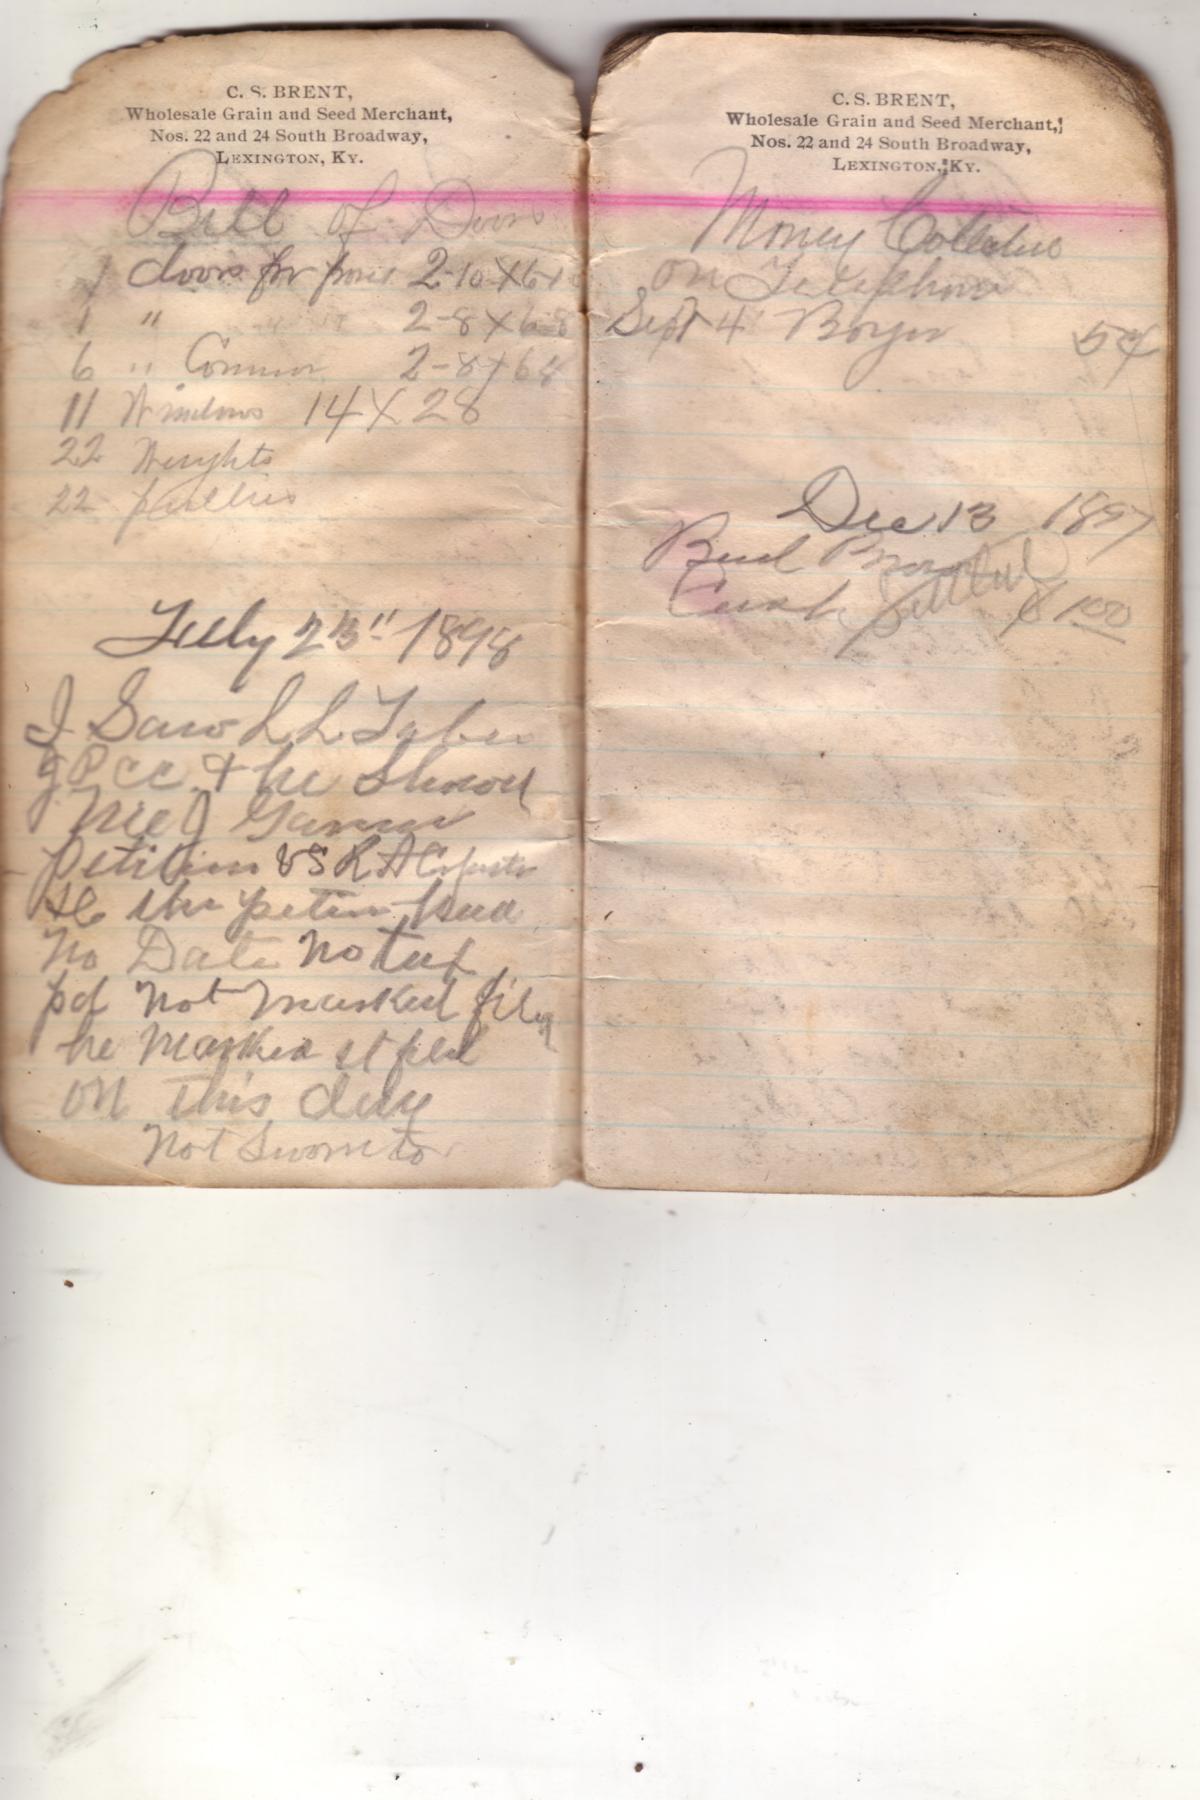 C. S. BRENT,
Wholesale Grain and Seed Merchant,
Nos. 22 and 24 South Broadway,
LEXINGTON, KY.
Bill of Doors
1 doors for 2-10 X 6-10
1 " 2-8 X 6-8
6 " Common 2-8 X 6 8
11 Windows 14 X 28
22 Weights
22 pullies
July 23" 1898
I Saw L L
J P C C & he Showed
Me
Petition VS R A
the
No Date Not
pd Not Marked
he Marked it filed
on this day
Not Sworn to
C. S. BRENT,
Wholesale Grain and Seed Merchant,
Nos. 22 and 24 South Broadway,
LEXINGTON, KY.
Money Collected
on Telephone
Sept 4
Dec 13 1897
Bud
Cash Settled $ 1.00